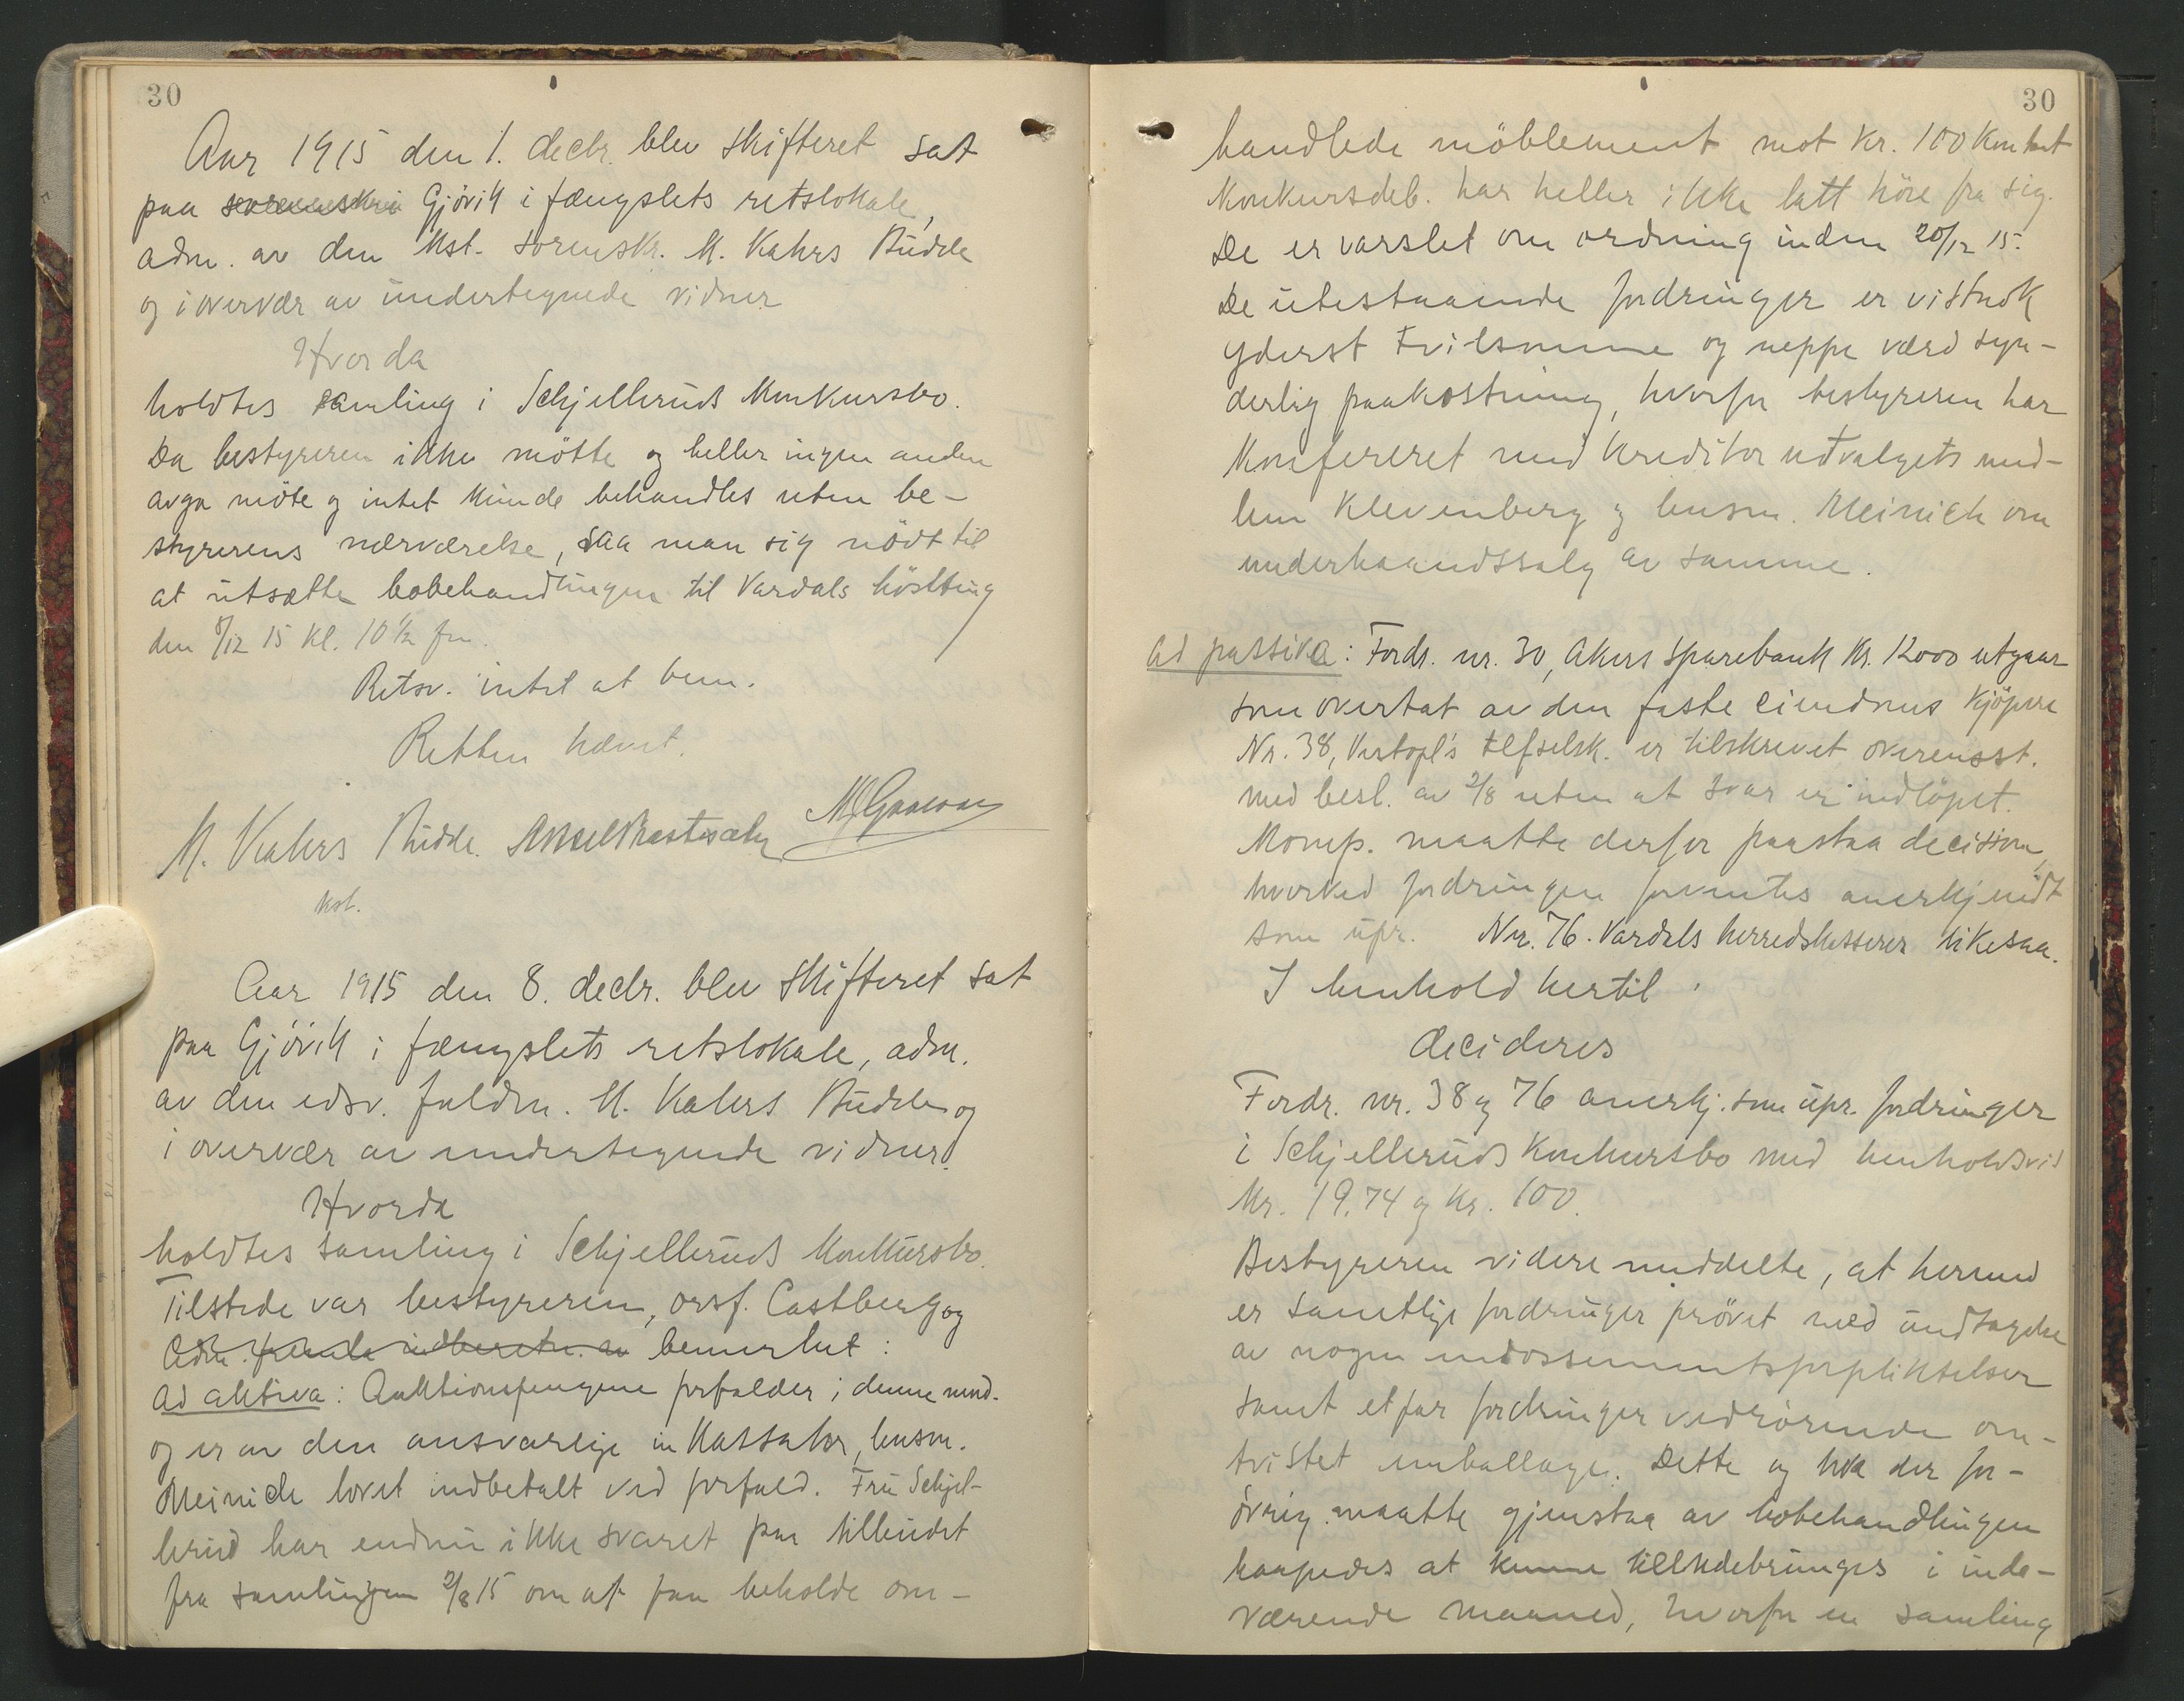 30
Aar 1915 den 1. decbr. blev skifteret sat
paa sorenskri Gjövik i fængslets retslokale,
adm. av den kst. sorenskr. M. Kahrs Budde
og i overvær av undertegnede vidner
Hvorda
holdtes samling i Schjelleruds konkursbo.
Da bestyreren ikke mötte og heller ingen anden
avga möte og intet kunde behandles uten be-
styrerens nærværelse, saa man sig nödt til
at utsætte bobehandlingen til Vardals höstting
den 8/12 15 kl. 10 1/2 fm.
Retsv. intet at bem.
Retten hævet.
M. Kahrs Budde.
kst.
Aar 1915 den 8. decbr. blev skifteret sat
paa Gjövik i fængslets retslokale, adm.
av den edsv. fuldm. M. Kahrs Budde og
i overvær av undertegnede vidner.
Hvorda
holdtes samling i Schjelleruds konkursbo.
Tilstede var bestyreren, orsf. Castberg og
Adm. fremla indberetn. av bemerket:
Ad aktiva: Auktionspengene forfalder i denne mnd.
og er av den ansvarlige inkassator, lensm.
Meinich lovet indbetalt ved forfald. Fru Schjel-
lerud har endnu ikke svaret paa tilbudet
fra samlingen 2/8 15 om at faa beholde om-
30
handlede möblement mot kr. 100 kontant
Konkursdeb. har heller ikke latt höre fra sig.
De er varslet om ordning inden 20/12 15.
De utestaaende fordringer er vistnok
yderst tvilsomme og neppe værd syn-
derlig paakostning, hvorfor bestyreren har
konfereret med kreditorutvalgets med-
lem Klevenberg og lensm. Meinich om
underhaandssalg av samme.
Ad passiva: Fordr. nr. 30, Akers Sparebank kr. 12000 utgaar
som overtat av den faste eiendoms kjöpere
Nr. 38, Vestopl's tlfselsk. er tilskrevet overensst.
med besl. av 2/8 uten at svar er indlöpet.
Komp. maatte derfor paastaa decision,
hvorved fordringen formentes anerkjendt
som upr. Nr. 76. Vardals herredskasserer likesaa.
I henhold hertil
decideres
Fordr. nr. 38 og 76 anerkj. som upr. fordringer
i Schjelleruds konkursbo med henholdsvis
kr. 19.74 og kr. 100.
Bestyreren videre meddelte, at hermed
er samtlige fordringer prövet med undtagelse
av nogen endossementsforpliktelser
samt et par fordringer vedrörende om-
tvistet emballage. Dette og hva der for-
övrig maatte gjenstaa av bobehandlingen
haapedes at kunne tilendebringes i inde-
værende maaned, hvorfor en samling